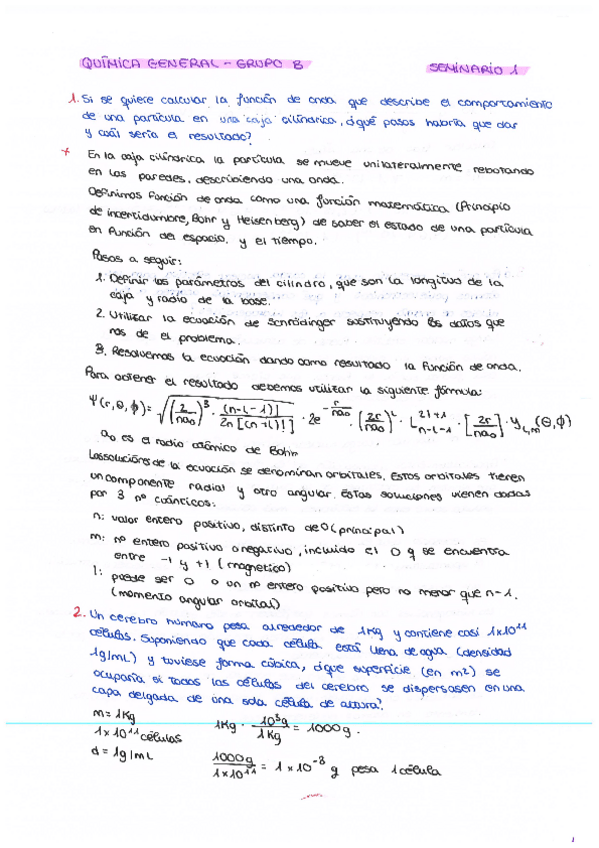 QUÍMICA GENERAL - GRUPO B
SEMINARIO 1
1. Si se quiere calcular la función de onda que describe el comportamiento
de una partícula en una caja cilíndrica, ¿qué pasos habría que dar
y cuál sería el resultado?
* En la caja cilíndrica la partícula se mueve unilateralmente rebotando
en las paredes, describiendo una onda.
Definimos función de onda como una función matemática (Principio
de incertidumbre, Bohr y Heisenberg) de saber el estado de una partícula
en función del espacio y el tiempo.
Pasos a seguir:
1. Definir los parámetros del cilindro, que son la longitud de la
caja y radio de la base.
2. Utilizar la ecuación de Schrödinger sustituyendo los datos que
nos de el problema.
3. Resolvemos la ecuación dando como resultado la función de onda.
Para obtener el resultado debemos utilizar la siguiente fórmula:
Ψ(r,θ,ϕ) = √((2/na₀)³ · (n-l-1)!/2n[(n+l)!]) · 2e^(-r/na₀) · [2r/na₀]^l · L_(n-l-1)^(2l+1) · [2r/na₀] · y_l,m (θ,ϕ)
a₀ es el radio atómico de Bohr
Las soluciones de la ecuación se denominan orbitales. Estos orbitales tienen
un componente radial y otro angular. Estas soluciones vienen dadas
por 3 nº cuánticos:
n: valor entero positivo, distinto de 0 (principal)
m: nº entero positivo o negativo, incluido el 0 q se encuentra
entre -1 y +1 (magnetico)
l: puede ser 0 o un nº entero positivo pero no menor que n-1.
(momento angular orbital)
2. Un cerebro humano pesa alrededor de 1Kg y contiene casi 1x10¹¹
células. Suponiendo que cada célula está llena de agua (densidad
1g/mL) y tuviese forma cúbica, ¿que superficie (en m²) se
ocuparía si todas las células del cerebro se dispersasen en una
capa delgada de una sola célula de altura?
m = 1Kg
1Kg · 10³g/1Kg = 1000g.
1 x 10¹¹ células
d = 1g/mL
1000g/1x10¹¹ = 1 x 10⁻⁸ g pesa 1 célula